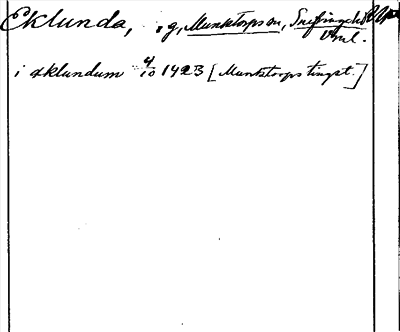 Eklunda, g, Munktorps sn, Snefringe hd
Vml.
i æklundum 4/10 1423 [Munktorps tingst.]